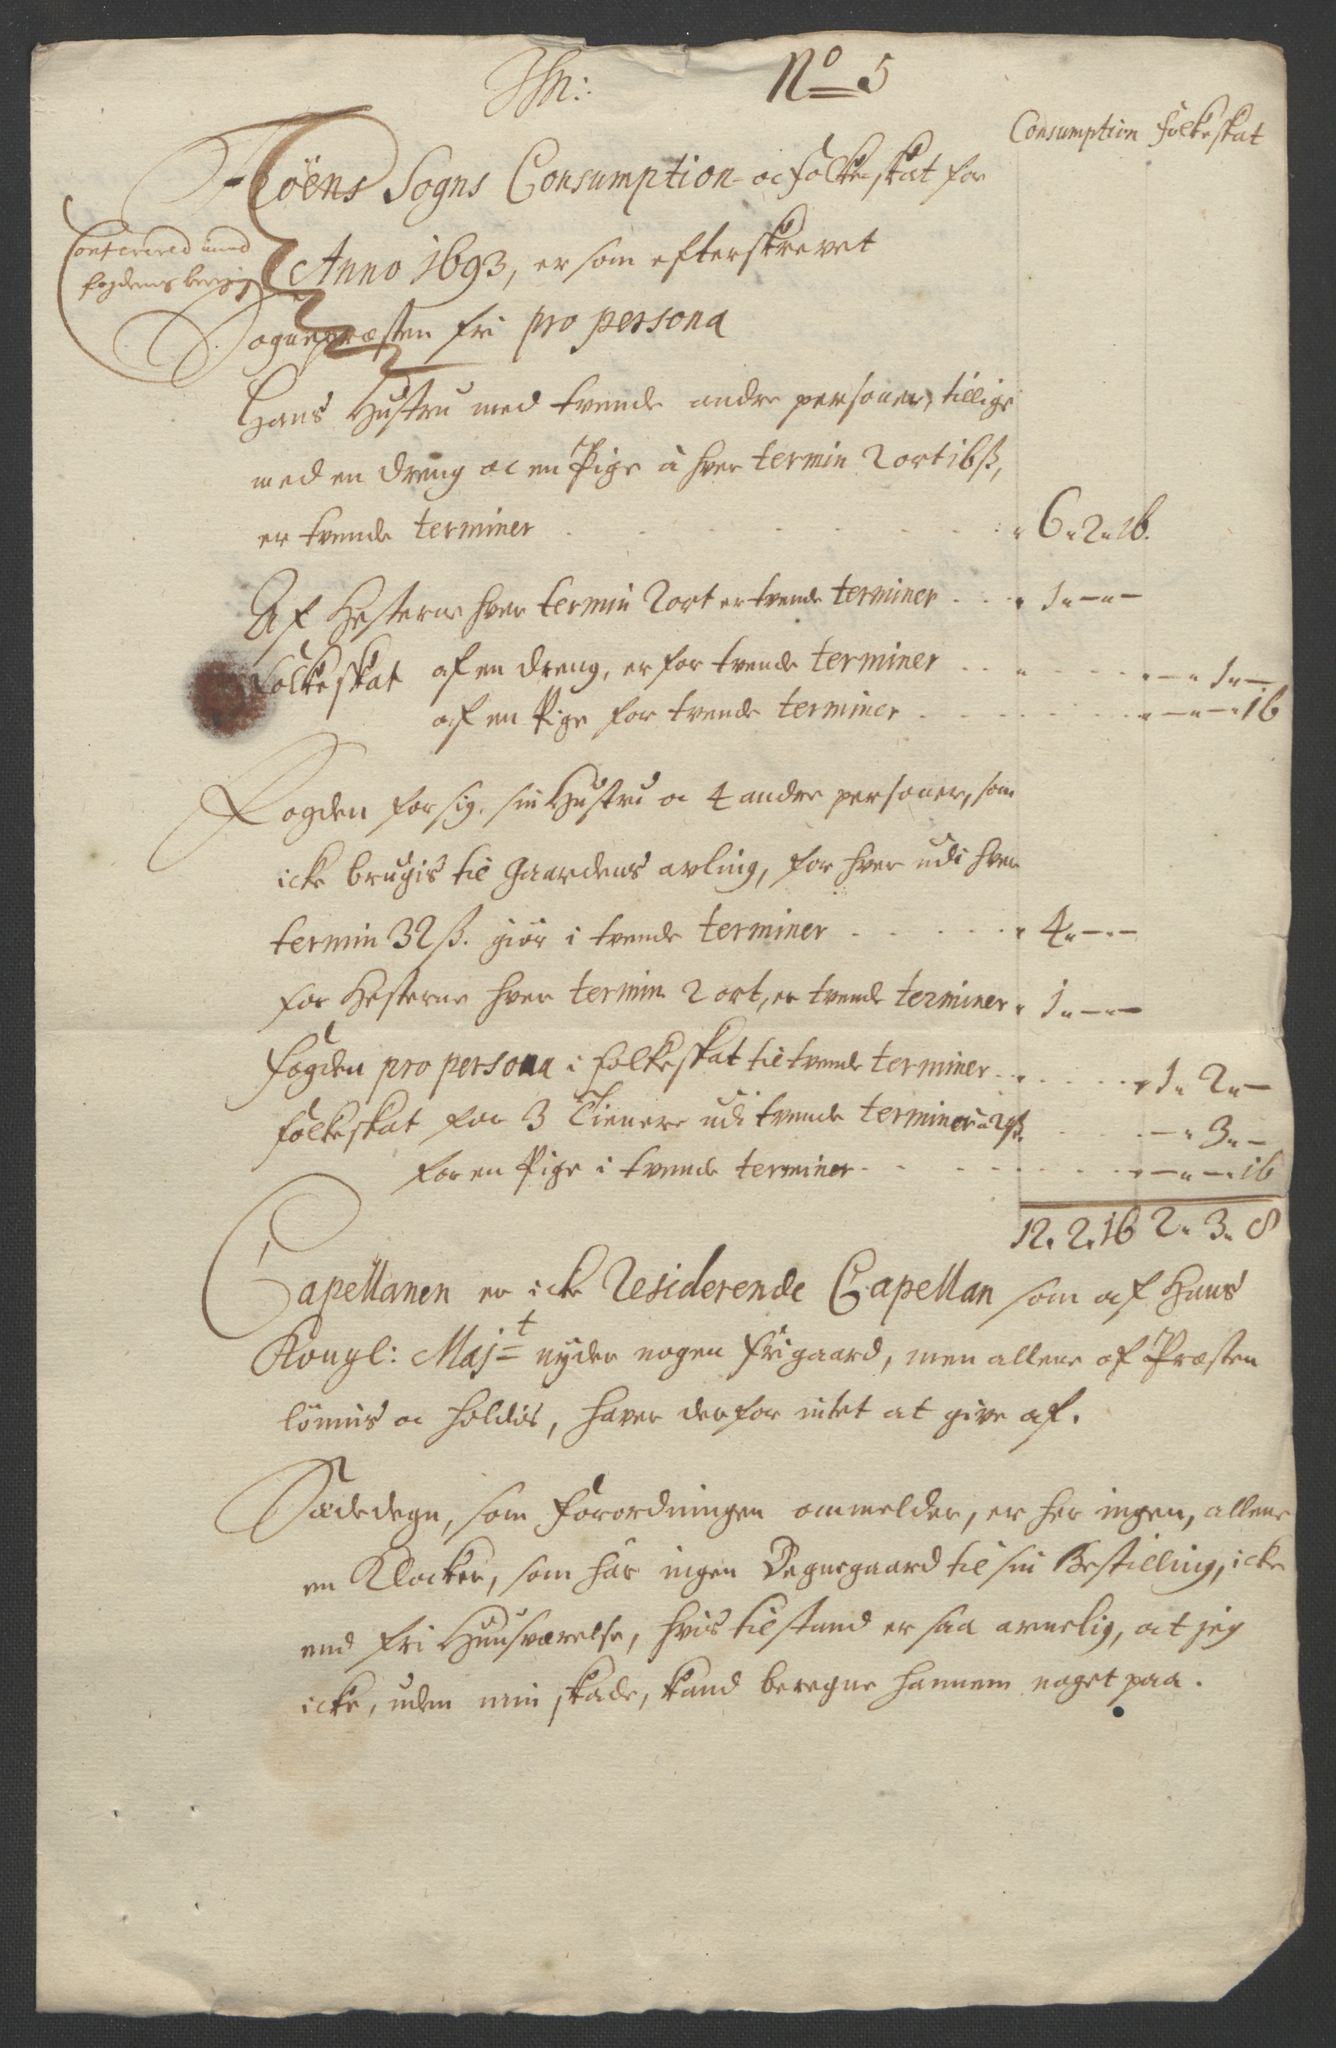 Jhn:
No 5
Consumption folkeskat
Höens Sogns Consumption- oc folkeskat for
Anno 1693, er som efterskrevet
Confererid med
fogdens bereg
Sognepræsten fri pro persona
Hans Hustru med tvende andre personer, tillige
med en dreng oc en Pige à hver termin 2 ort 16 ß,
er tvende terminer . . . . . . 6. 2. 16.
Af Hesterne hver termin 2 ort er tvende terminer . . . 1. — —
folkeskat af en dreng, er for tvende terminer . . . — 1. —
af en Pige for tvende terminer . . . — — 16
Fogden for sig, sin Hustru oc 4 andre personer, som
icke brugis til Gaardens avling, for hver udi hver
termin 32 ß. giör i tvende terminer . . . . . 4. — —
for Hesterne hver termin 2 ort, er tvende terminer . 1. — —
fogden pro persona i folkeskat til tvende terminer . . . 1. 2. —
folkeskat for 3 Tienere udi tvende terminer . . . — 3. —
for en Pige i tvende terminer . . . — — 16
12. 2. 16 2. 3. 8
Capellanen er icke Residerende Capellan som af Hans
Kongl: Majt nyder nogen frigaard, men allene af Præsten
lönnis oc holdis, haver derfor intet at give af.
Sædedegn, som forordningen ommelder, er her ingen, allene
en Klocker, som har ingen Degnegaard til sin Bestilling, icke
end fri Huusværelse, hvis tilstand er saa armelig, at jeg
icke, uden min skade, kand beregne hannem noget paa.